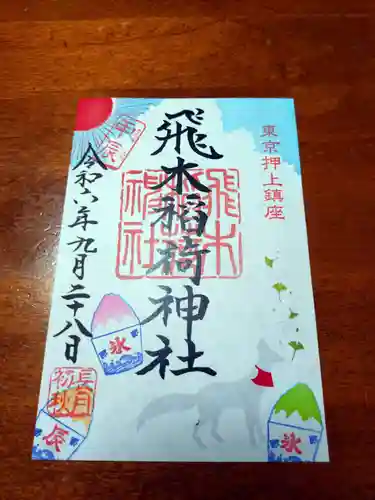 東京押上鎮座
飛木稲荷神社
飛木
稲荷
神社
令和六年九月二十八日
甲辰
長月
初秋
氷
氷
氷